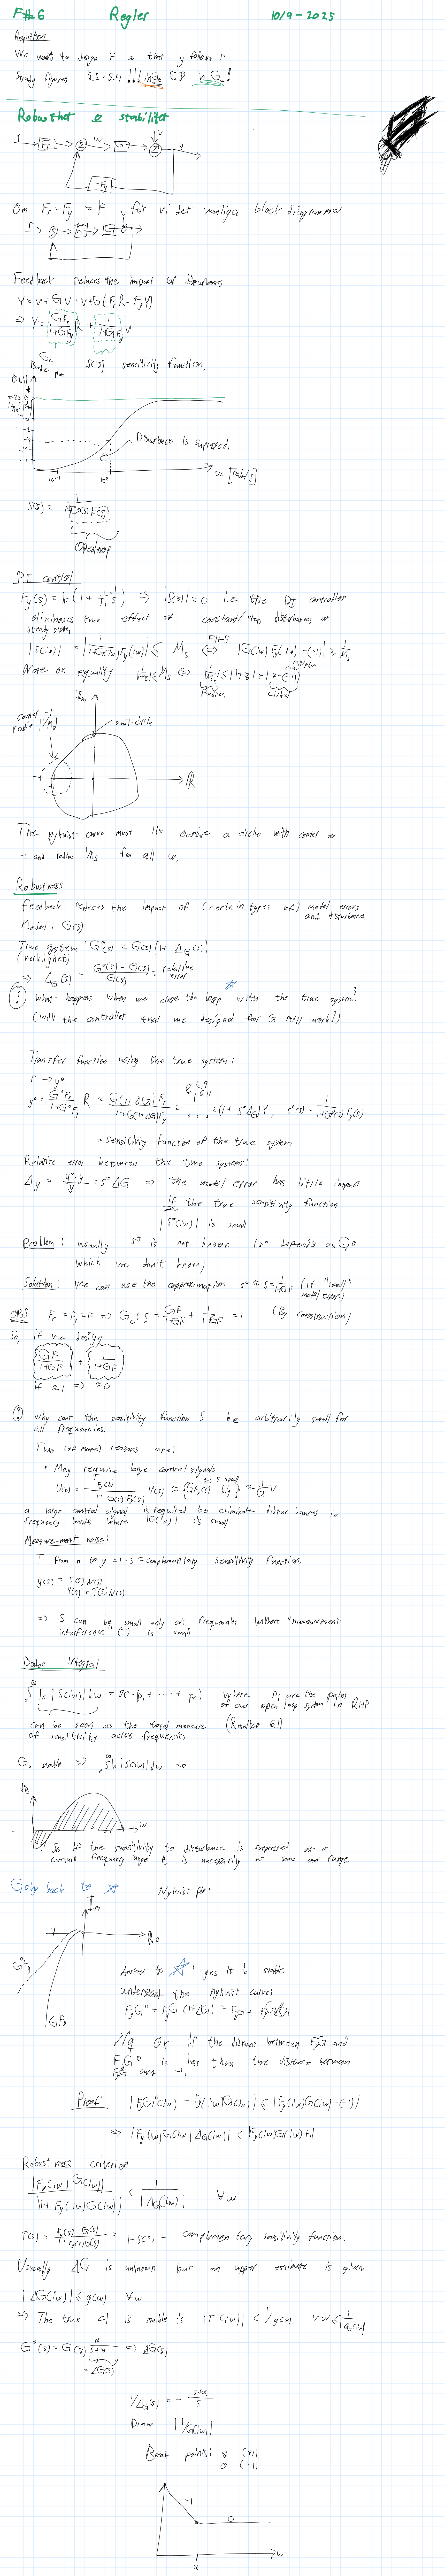 F#6 Regler 10/9-2025
Repetition
We want to design F so that y follows r
Study figures 5.2-5.4 !!! in G₀ 5.8 in Gc!
Robusthet & stabilitet
r Fr Σ u G Σ v y
-Fy
Om Fr = Fy = F får vi det vanliga block diagrammet
Feedback reduces the impact of disturbances
Y = V + GU = V + G(FrR - FyY)
⇒ Y = GFr/(1+GFy) R + 1/(1+GFy) V
Gc S(s) sensitivity function,
Bode plot
Disturbance is supressed.
10⁻¹ 10⁰ ω [rad/s]
S(s) = 1/(1+G(s)F(s))
Open loop
PI control
Fy(s) = k(1 + 1/Ti 1/s) ⇒ |S(0)| = 0 i.e the PI controller
eliminates the effect of constant/step disturbances at
steady state
|S(iω)| = |1/(1+G(iω)Fy(iω))| ≤ Ms ⇔ F#5 |G(iω)Fy(iω) - (-1)| ≥ 1/Ms
Note on equality |1/(1+z)| ≤ Ms ⇔ 1/Ms ≤ |1+z| = |z-(-1)|
Radius
Im
center -1
radie |1/Ms|
unit circle
ℝ
The nyknist curve must lie outside a circle with center at
-1 and radius 1/Ms for all ω.
Robustness
Feedback reduces the impact of (certain types of) model errors
and disturbances
Model: G(s)
True system: G⁰(s) = G(s)(1 + ΔG(s))
(verklighet)
⇒ ΔG(s) = (G⁰(s) - G(s))/G(s) = relative
error
! What happens when we close the loop with the true system?
(will the controller that we designed for G still work?)
Transfer function using the true system:
r → y⁰
y⁰ = G⁰Fr/(1+G⁰Fy) R = G(1+ΔG)Fr/(1+G(1+ΔG)Fy) = ... = (1+S⁰ΔG)Y, S⁰(s) = 1/(1+G⁰(s)Fy(s))
6.9
6.11
= sensitivity function of the true system
Relative error between the two systems:
Δy = (y⁰-y)/y = S⁰ΔG ⇒ the model error has little impact
if the true sensitivity function
|S⁰(iω)| is small
Problem: usually S⁰ is not known (S⁰ depends on G⁰
which we don't know)
Solution: We can use the approximation S⁰ ≈ S = 1/(1+GF) (if "small"
model errors)
OBS Fr = Fy = F ⇒ Gc + S = GF/(1+GF) + 1/(1+GF) = 1 (By construction)
So, if we design
GF/(1+GF) + 1/(1+GF)
if ≈1 ⇒ ≈0
! Why cant the sensitivity function S be arbitrarily small for
all frequencies.
Two (of more) reasons are:
• May require large control signals
U(s) = - Fy(s)/(1+G(s)Fy(s)) V(s) ≈ {GFy(s) big} ≈ 1/G V
a large control signal is required to eliminate disturbances in
frequency bands where |G(iω)| is small
Measurement noise:
T from n to y = 1-S = complementary sensitivity function.
y(s) = T(s)N(s)
Y(s) = T(s)N(s)
⇒ S can be small only at frequencies where "measurement
interference" (T) is small
Bodes integral
∫ ln|S(iω)| dω = π(p₁ + ... + pₙ) where pᵢ are the poles
of our open loop system in RHP
can be seen as the total measure (Resultat 6.1)
of sensitivity across frequencies
G₀ stable ⇒ ∫ ln|S(iω)| dω = 0
dB
ω
So if the sensitivity to disturbance is suppressed at a
certain frequency range it is necessarily at some our range.
Going back to ☆ Nykvist plot
Im
-1 Re
G⁰Fy
GFy
Answer to ☆: yes it is stable
understand the nykvist curve:
FyG⁰ = FyG(1+ΔG) = FyG + FyGΔG
Nq OK if the distance between FyG and
FyG⁰ is less than the distance between
FyG and -1.
Proof |FyG⁰(iω) - Fy(iω)G(iω)| < |Fy(iω)G(iω) - (-1)|
⇒ |Fy(iω)G(iω)ΔG(iω)| < |Fy(iω)G(iω)+1|
Robustness criterion
|Fy(iω)G(iω)|/|1+Fy(iω)G(iω)| < 1/|ΔG(iω)| ∀ω
T(s) = Fy(s)G(s)/(1+Fy(s)G(s)) = 1-S(s) = complementary sensitivity function.
Usually ΔG is unknown but an upper estimate is given
|ΔG(iω)| ≤ g(ω) ∀ω
⇒ The true cl is stable is |T(iω)| < 1/g(ω) ∀ω ≤ 1/|ΔG(iω)|
G⁰(s) = G(s) α/(s+α) ⇒ ΔG(s)
= ΔG(s)
1/ΔG(s) = - (s+α)/s
Draw |1/G(iω)|
Break points: α (+1)
0 (-1)
-1
0
α
ω